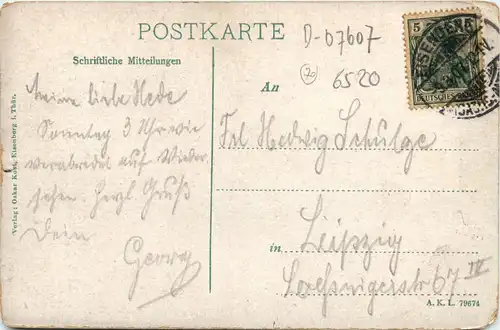 POSTKARTE
D-07607
Schriftliche Mitteilungen
20
6520
An
Meine liebe Hede
Sonntag 3 Uhr wie
verabredet auf Wieder
sehen. Herzl Gruß
Dein
Georg
Frl Hedwig Schulze
in Leipzig
67 IV
5
EISENBERG
DEUTSCHES
Verlag: Oskar Eisenberg i. Thür.
A. K. L. 79674